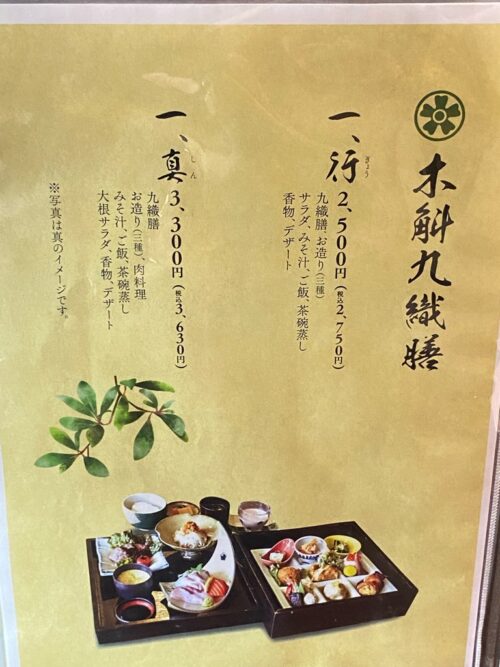 木斛九織膳
一、行 2,500円(税込2,750円)
ぎょう
九織膳、お造り(三種)
サラダ、みそ汁、ご飯、茶碗蒸し
香物、デザート
一、真 3,300円(税込3,630円)
しん
九織膳
お造り(三種)、肉料理
みそ汁、ご飯、茶碗蒸し
大根サラダ、香物、デザート
※写真は真のイメージです。